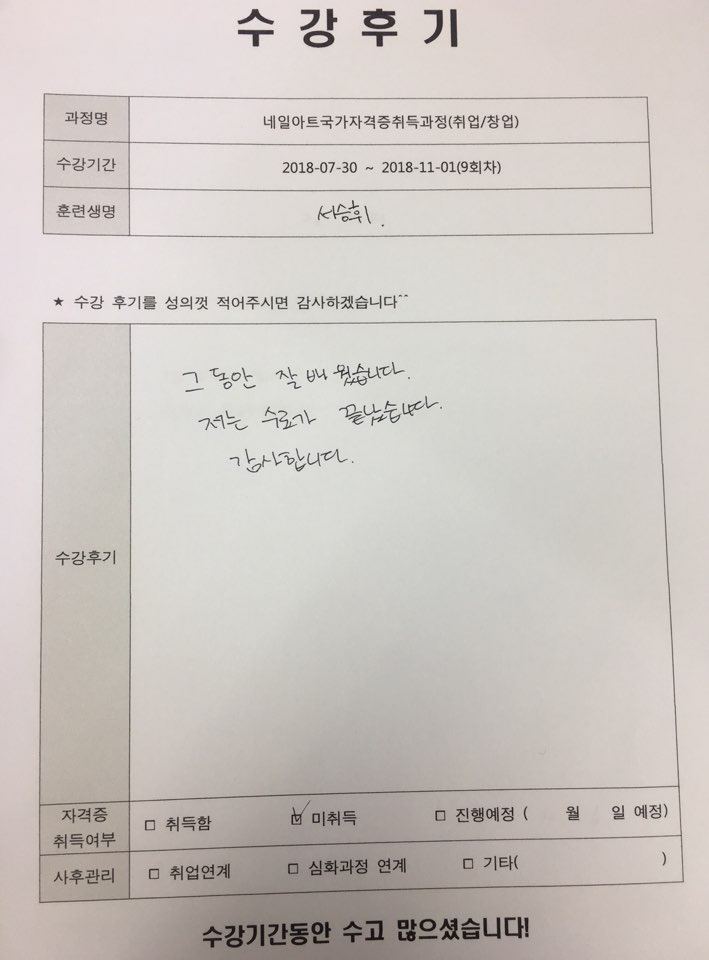 수강후기
과정명 네일아트국가자격증취득과정(취업/창업)
수강기간 2018-07-30 ~ 2018-11-01(9회차)
훈련생명 서승휘.
★ 수강 후기를 성의껏 적어주시면 감사하겠습니다^^
그 동안 잘 배웠습니다.
저는 수료가 끝났습니다.
감사합니다.
수강후기
자격증
취득여부
□ 취득함 ☑ 미취득 □ 진행예정 ( 월 일 예정)
사후관리 □ 취업연계 □ 심화과정 연계 □ 기타( )
수강기간동안 수고 많으셨습니다!